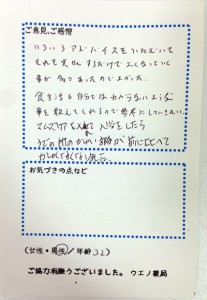 ご意見、ご感想
いろいろアドバイスをいただいて
それを実せんするだけでよくなっていく
事が多々あったので良かった。
食生活も自分ではわからないような
事を教えてくれるので参考にしていきたい。
入浴をしたら
うでの かゆい が前に比べて
お気づきの点など
(女性・男性/年齢32)
ご協力有難うございました。ウエノ薬局